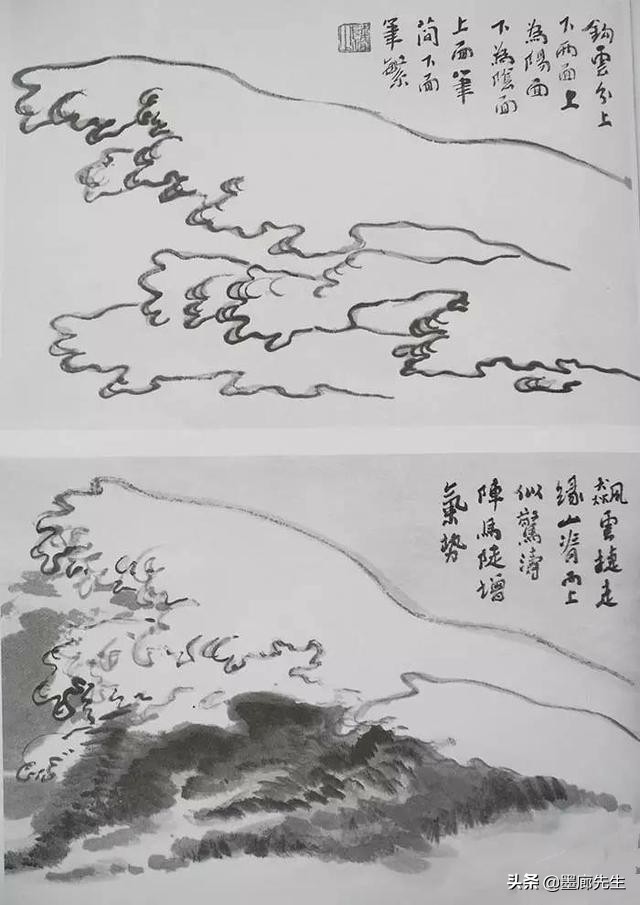 鈎雲分上
下兩面上
為陽面
下為陰面
上面筆
简下面
筆繁
飆雲捷走
緣山脊而上
似驚濤
陣馬陡增
氣勢
头条 @墨廊先生